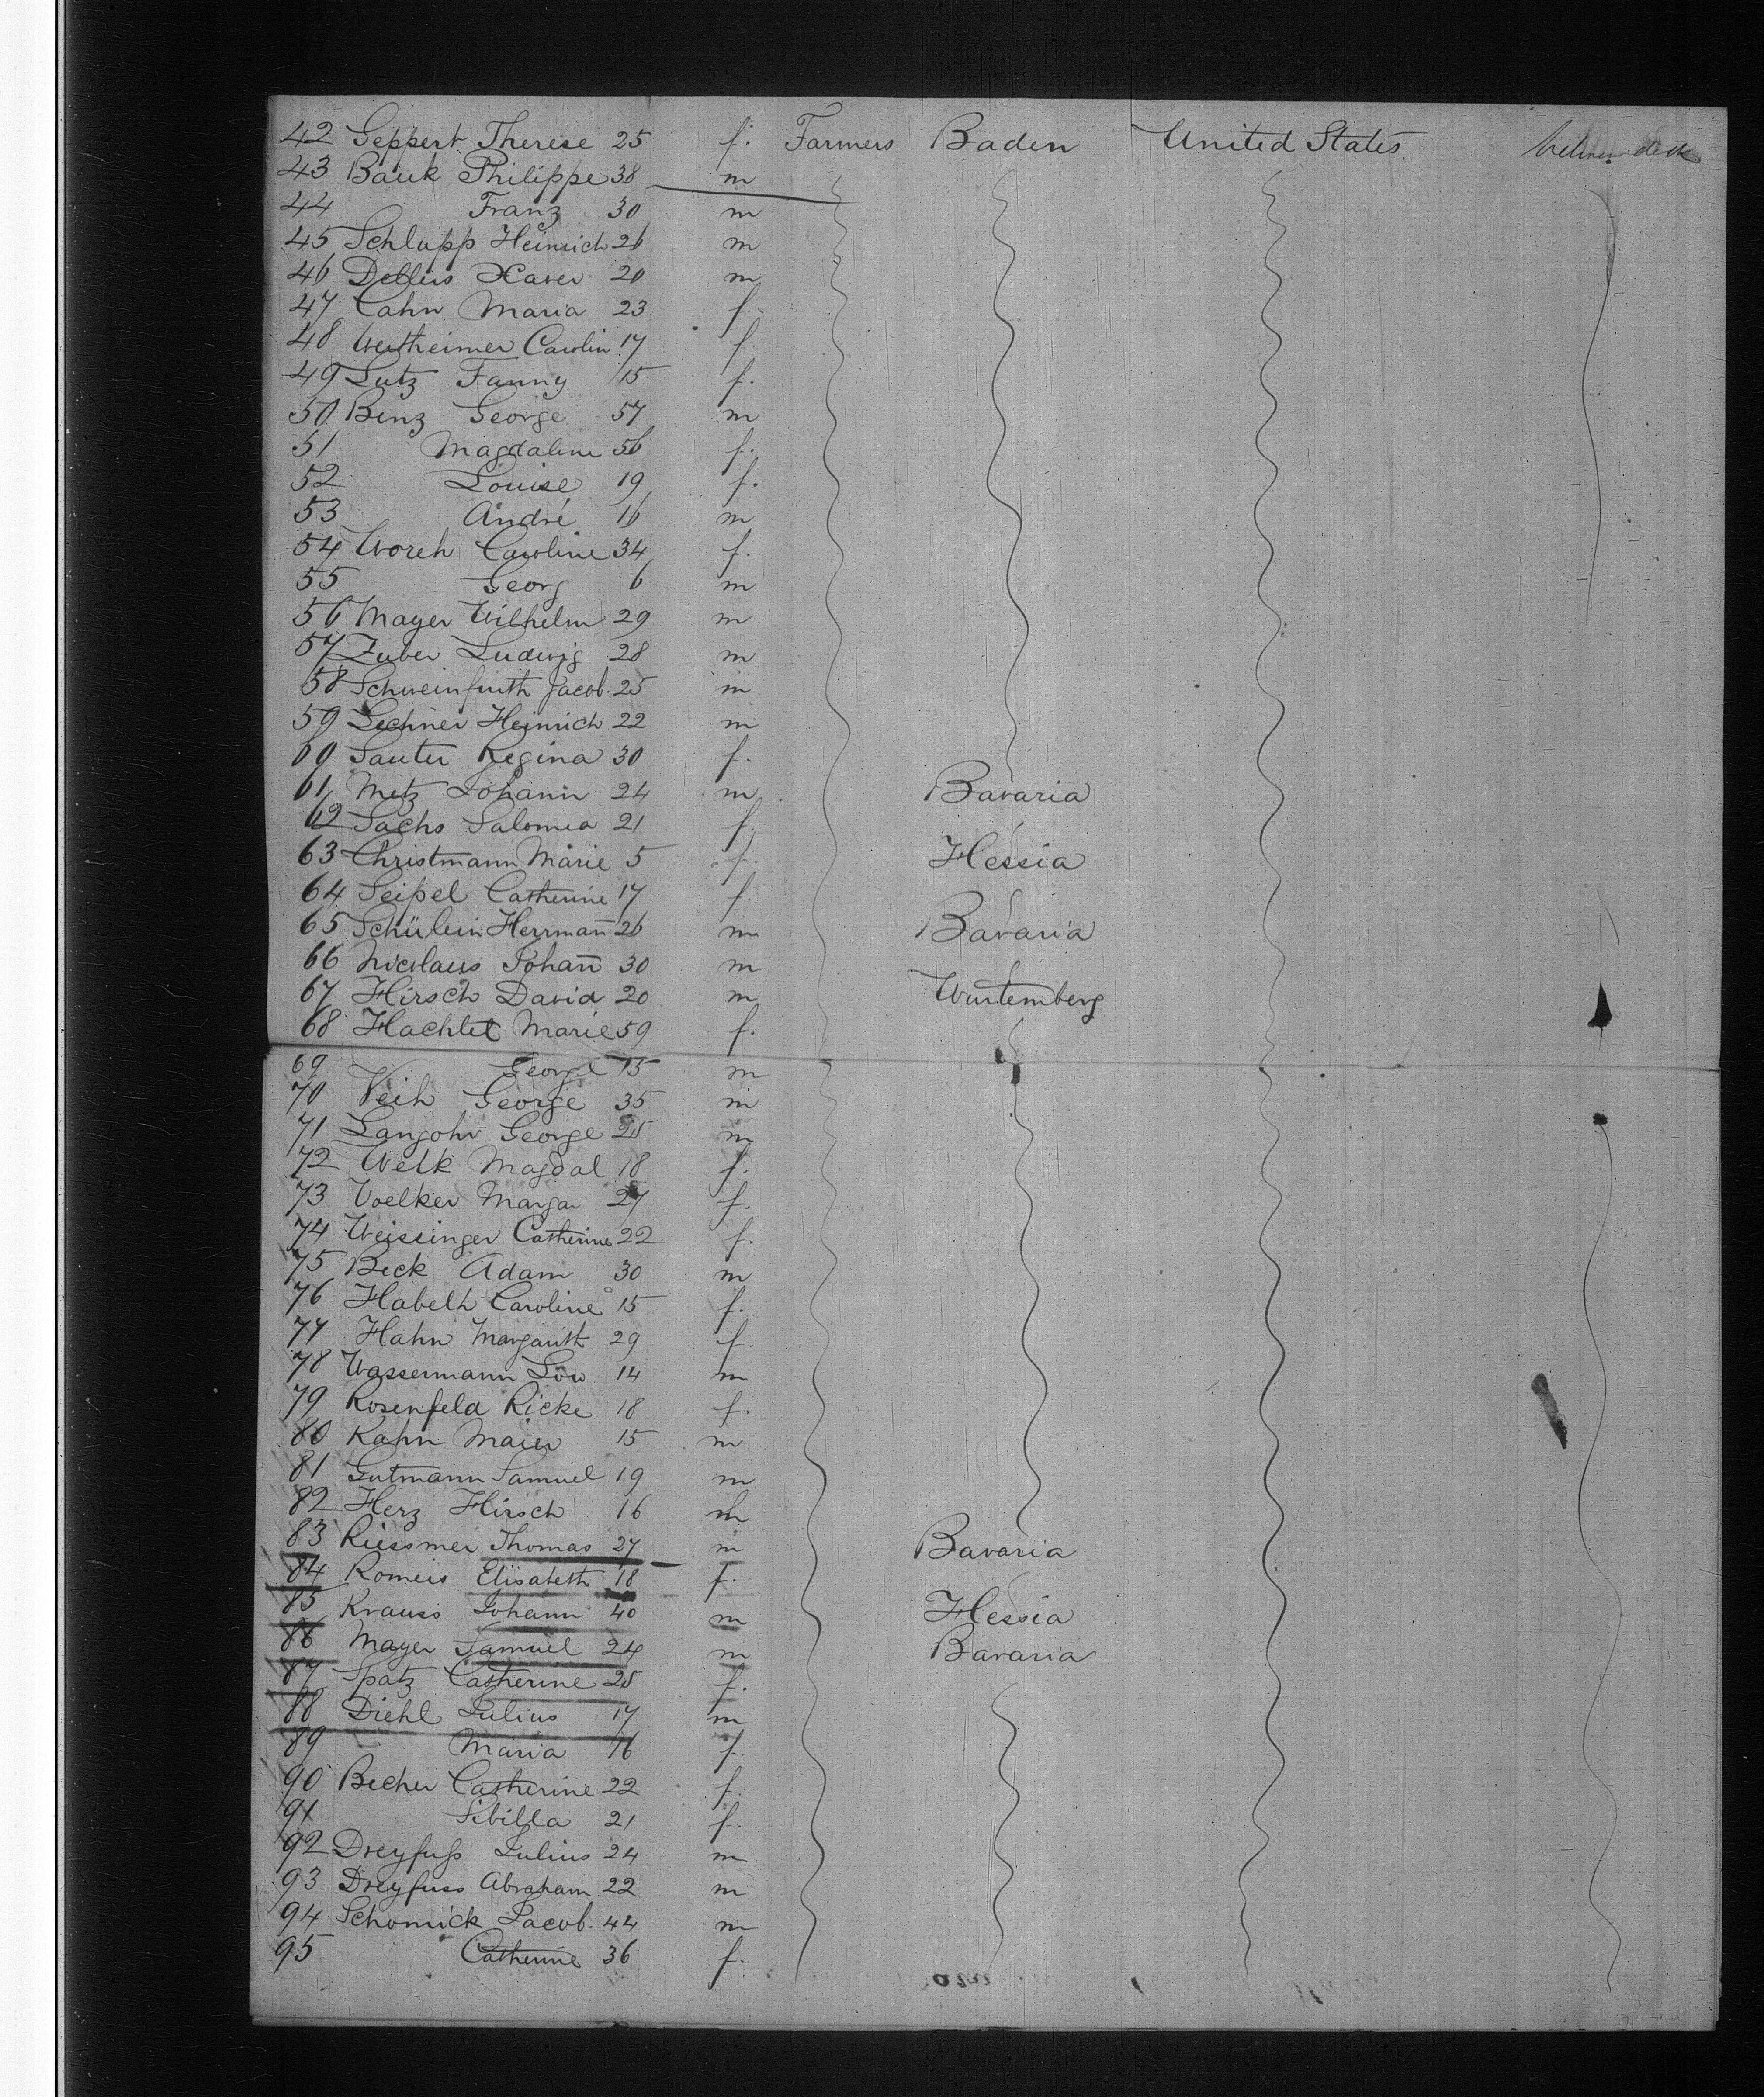 42 Geppert Therese 25 f. Farmers Baden United States
43 Bauk Philippe 38 m
44 Franz 30 m
45 Schlupp Heinrich 26 m
46 Xaver 20 m
47 Cahn Maria 23 f.
48 Wertheimer Carolin 17 f.
49 Lutz Fanny 15 f.
50 Benz George 57 m
51 Magdaline 56 f.
52 Louise 19 f.
53 André 16 m
54 Caroline 34 f.
55 Georg 6 m
56 Mayer Wilhelm 29 m
57 Zuber Ludwig 28 m
58 Schweinfurth Jacob. 25 m
59 Lechner Heinrich 22 m
60 Sauter Regina 30 f.
61 Metz Johann 24 m Bavaria
62 Sachs Salomea 21 f.
63 Christmann Marie 5 f. Hessia
64 Seipel Catherine 17 f.
65 Schülein Herrman̄ 26 m Bavaria
66 Nicolaus Johan̄ 30 m
67 Hirsch David 20 m Wurtemberg
68 Marie 59 f.
69 George 15 m
70 Veih George 35 m
71 Langohr George 25 m
72 Welk Magdal 18 f.
73 Voelker Margar 27 f.
74 Weissinger Catherine 22 f.
75 Beck Adam 30 m
76 Habelh Caroline 15 f.
77 Hahn Margarith 29 f.
78 Wassermann Löw 14 m
79 Rosenfeld Ricke 18 f.
80 Kahn Maier 15 m
81 Gutmann Samuel 19 m
82 Herz Hirsch 16 m
83 Riessmer Thomas 27 m Bavaria
84 Romeis Elisabeth 18 f.
85 Krauss Johann 40 m Hessia
86 Mayer Samuel 24 m Bavaria
87 Spatz Catherine 25 f.
88 Diehl Julius 17 m
89 Maria 16 f.
90 Becher Catherine 22 f.
91 Sibilla 21 f.
92 Dreyfuſs Julius 24 m
93 Dreyfuss Abraham 22 m
94 Schomick Jacob. 44 m
95 Catherine 36 f.